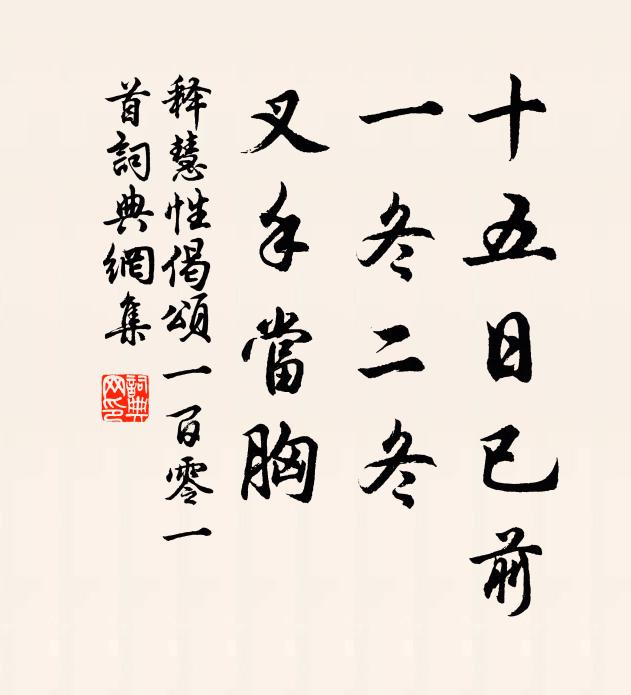 十五日已前
一冬二冬
叉手當胸
释慧性偈頌一百零一
首詞典網集
詞典网印